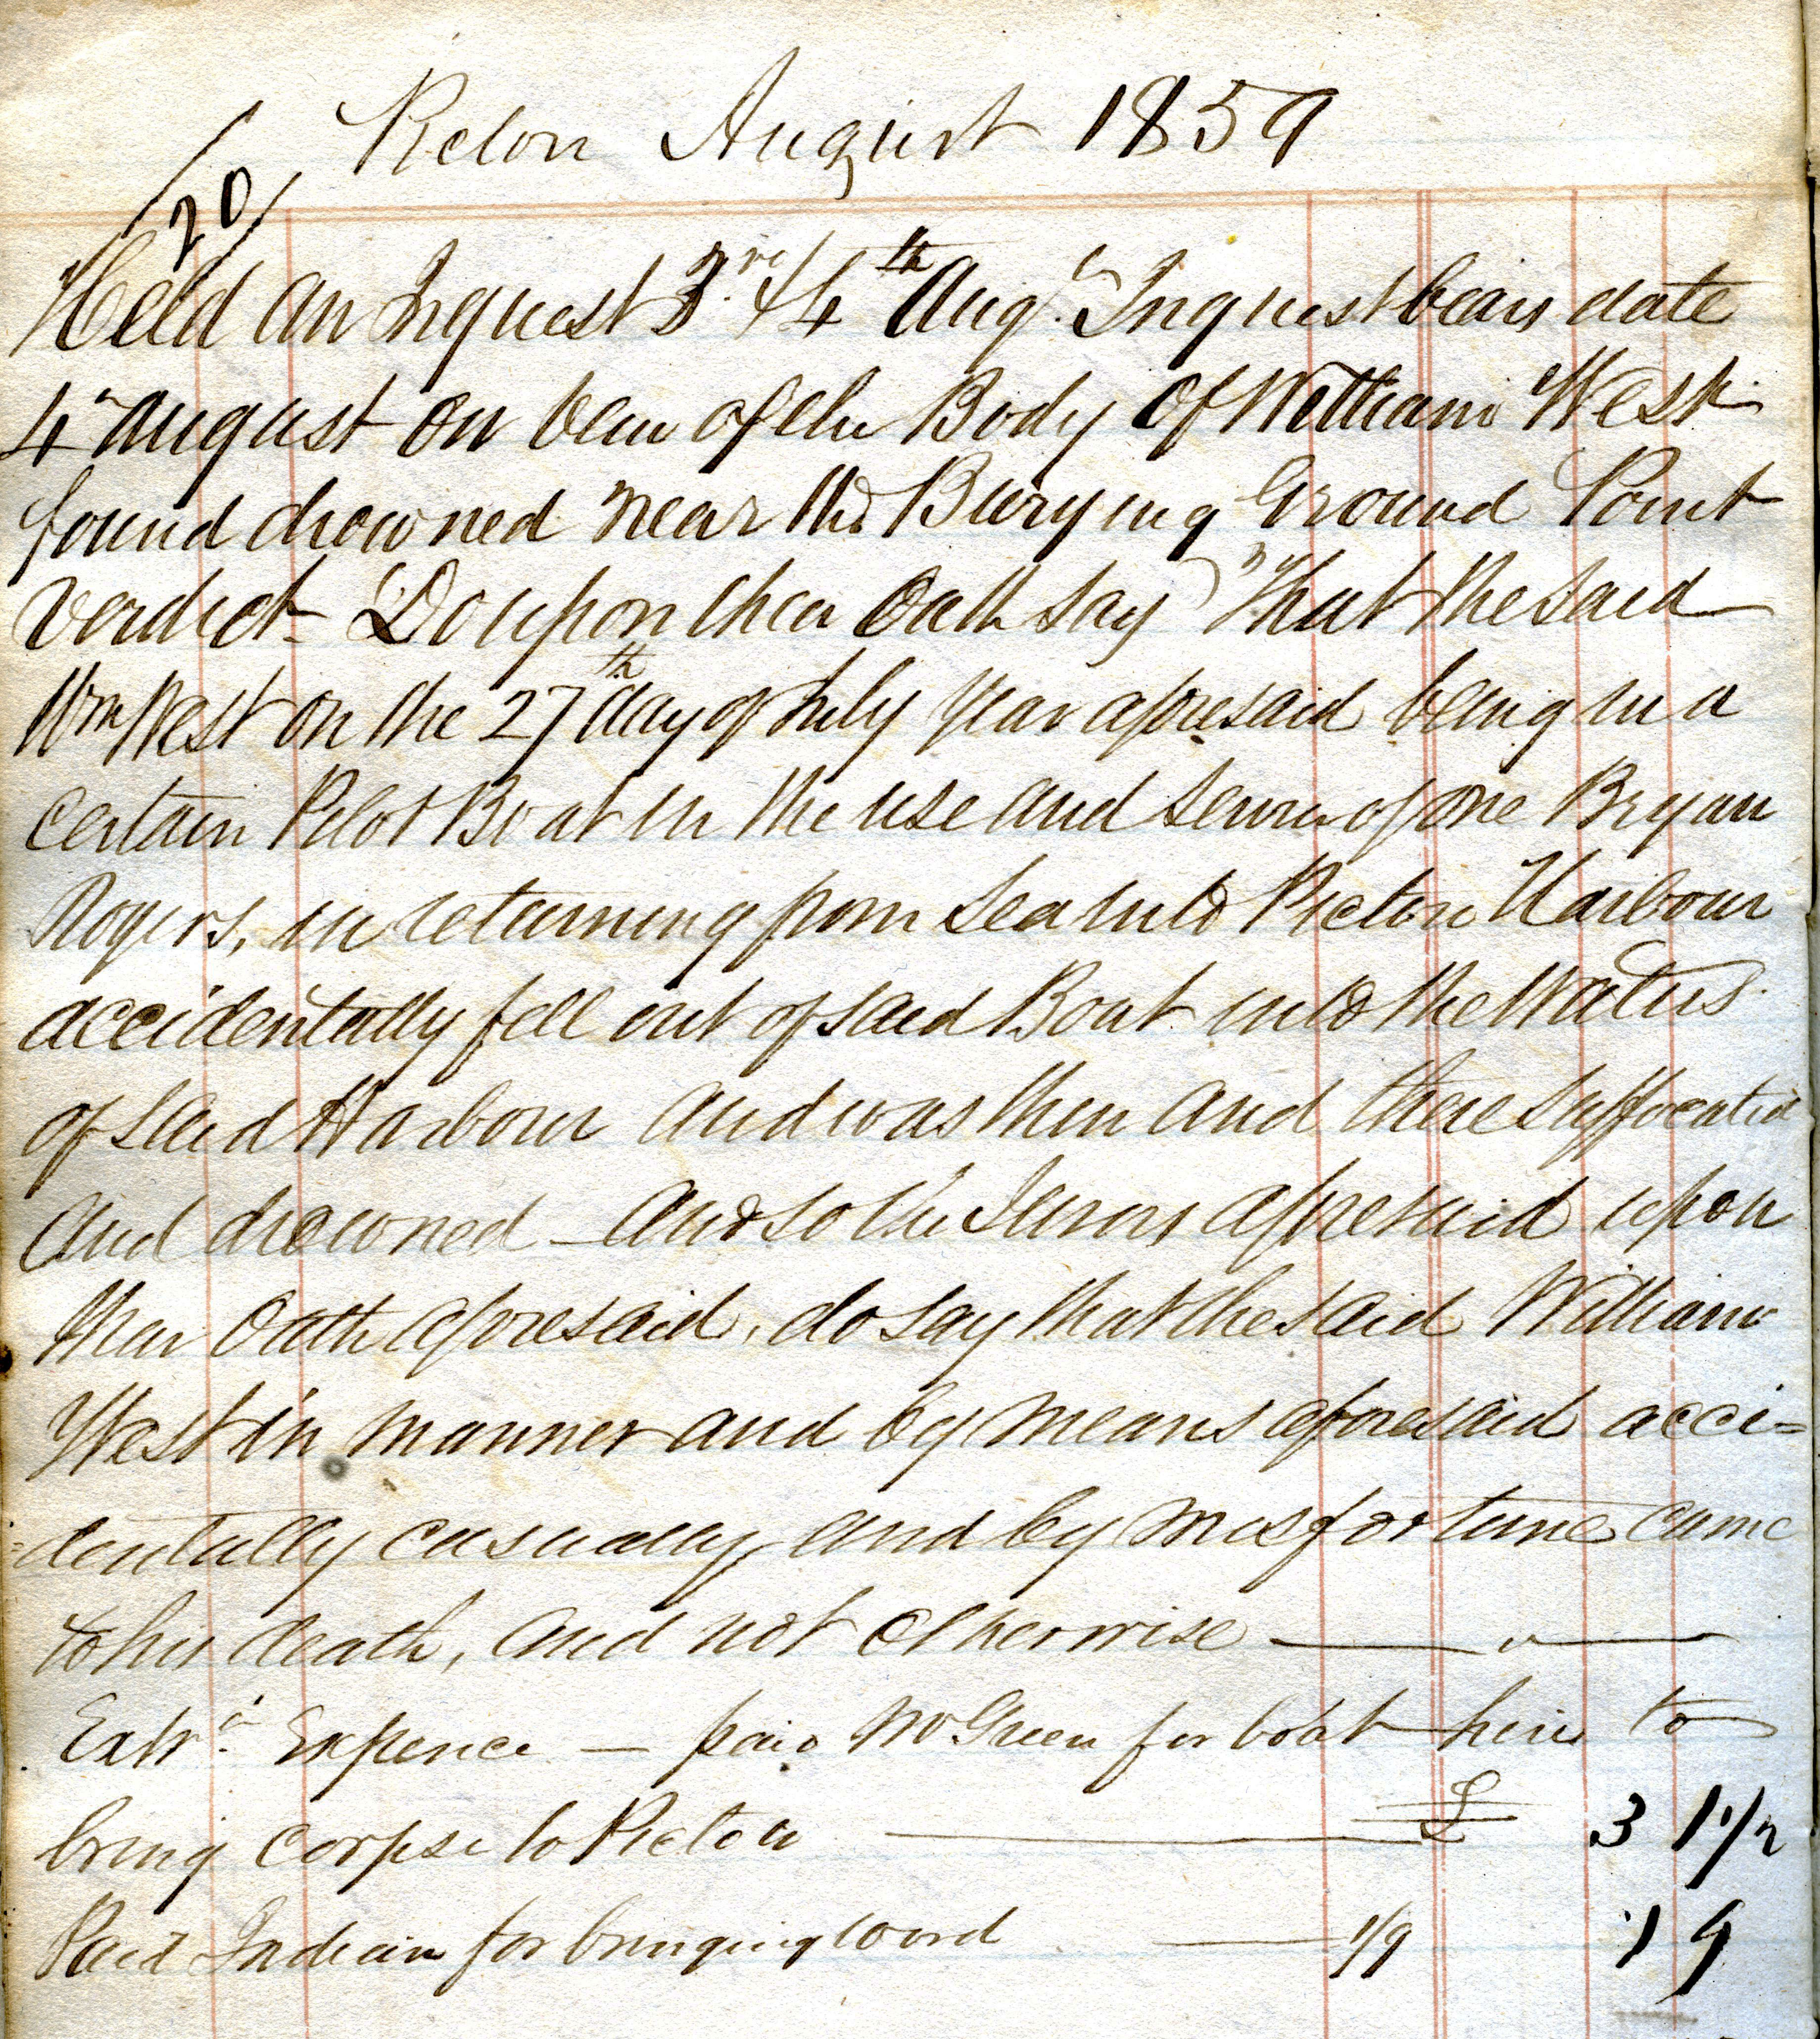 Pictou August 1859
20/
Held an Inquest 3rd & 4th Aug. Inquest bears date
4th August on view of the Body of William West
found drowned near the Burying Ground Point
verdict - "Do upon their Oath say" "That the said
Wm West on the 27th day of July year aforesaid being in a
certain Pilot Boat in the use and service of one Bryan
Rogers, in returning from sea into Pictou Harbour
accidentally fell out of said Boat into the Waters
of said Harbour and was then and there suffocated
and drowned - and so the Jurors aforesaid upon
their Oath aforesaid, do say that the said William
West in manner and by means aforesaid acci=
=dentally casually and by misfortune came
to his death, and not otherwise
Extra Expence - paid McGreen for boat hire to
bring corpse to Pictou £ 3 1 1/2
Paid Indian for bringing word 1/9 1 9